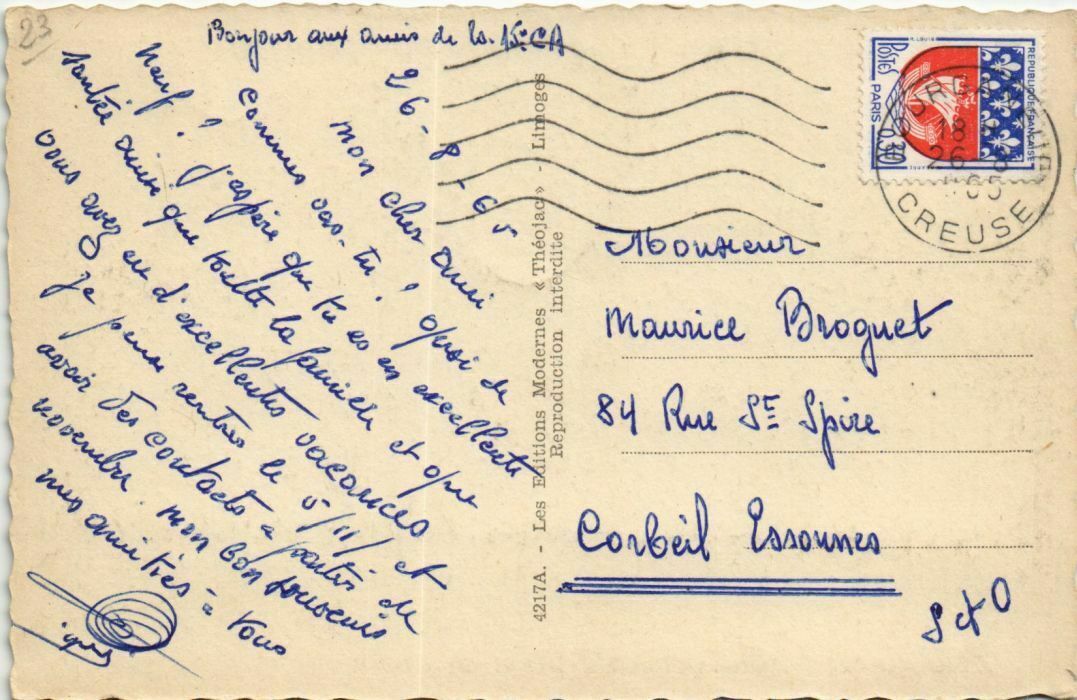 23
Bonjour aux amis de la 15e CA
26-8-65
Mon cher ami
Commes vas-tu ? quoi de
Neuf ? J'espère que tu es en excellente
santée ainsi que toutte la famille et que
vous avez eu d'excellentes vacances
je pense rentrer le 5/11/ et
avoir des contacts a partir de
novembre. Mon bon souvenir
mes amitiés à tous
4217A. - Les Editions Modernes « Théojac » - Limoges
Reproduction interdite
POSTES
REPUBLIQUE FRANÇAISE
PARIS
0,30
18
26
1965
CREUSE
Monsieur
Maurice Broguet
84 Rue St Spire
Corbeil Essonnes
S et O